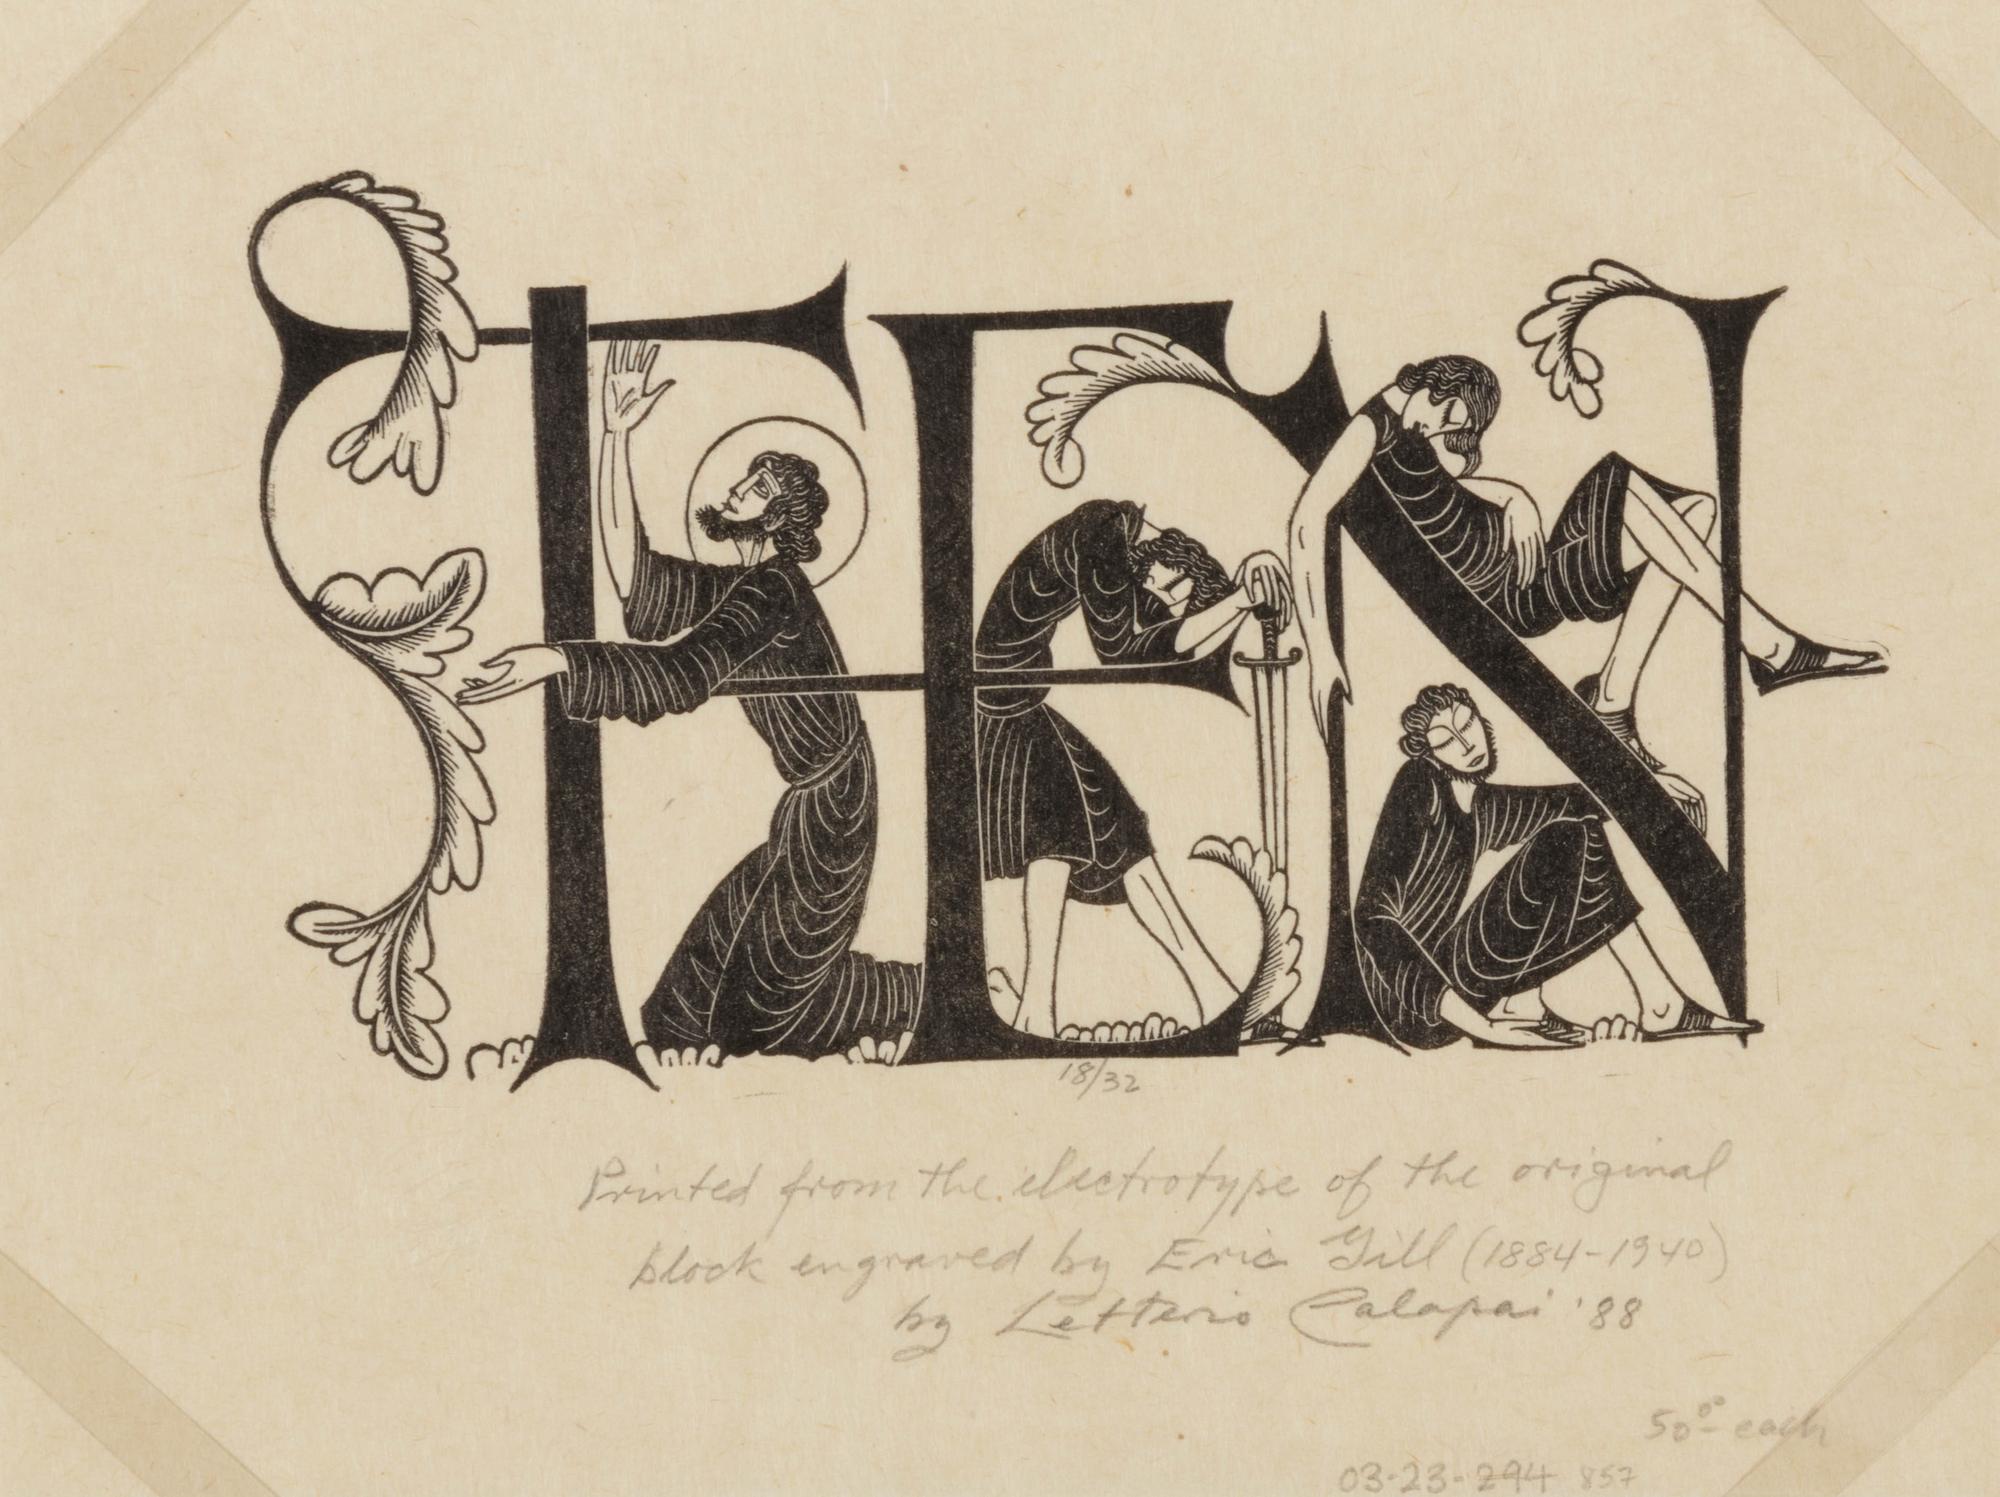 THEN
18/32
Printed from the electrotype of the original
block engraved by Eric Gill (1884-1940)
by Letterio Calapai '88
50⁰⁰ each
03-23-294 857